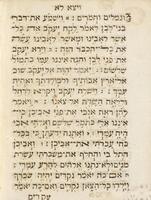 ויצא לא
וגמלים וחמרים: וישמע את־דברי
בני־לבן לאמר לקח יעקב את כל־
אשר לאבינו ומאשר לאבינו עשה
את כל־הכבד הזה: וירא יעקב
את־פני לבן והנה איננו עמו כתמול
שלשום: ויאמר יהוה אל־יעקב שוב
אל־ארץ אבותיך ולמולדתך ואהיה
עמך: וישלח יעקב ויקרא לרחל
וללאה השדה אל־צאנו: ויאמר
להן ראה אנכי את־פני אביכן כי־
איננו אלי כתמל שלשם ואלהי אבי
היה עמדי: ואתנה ידעתן כי בכל־
כחי עבדתי את־אביכן: ואביכן
התל בי והחלף את־משכרתי עשרת
מנים ולא־נתנו אלהים להרע עמדי:
אם־כה יאמר נקדים יהיה שכרך
וילדו כל־הצאן נקדים ואם־כה יאמר